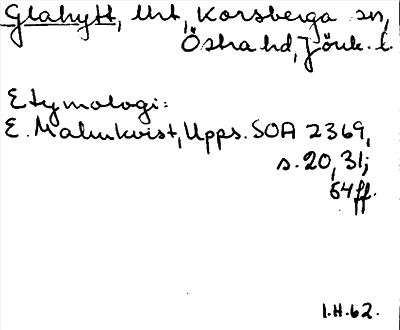 Glahytt, Urt, Korsberga sn,
Östra hd, Jönk. l.
Etymologi:
E. Malmkvist, Upps. SOA 2369,
s. 20, 31;
54 ff.
I.H. 62.